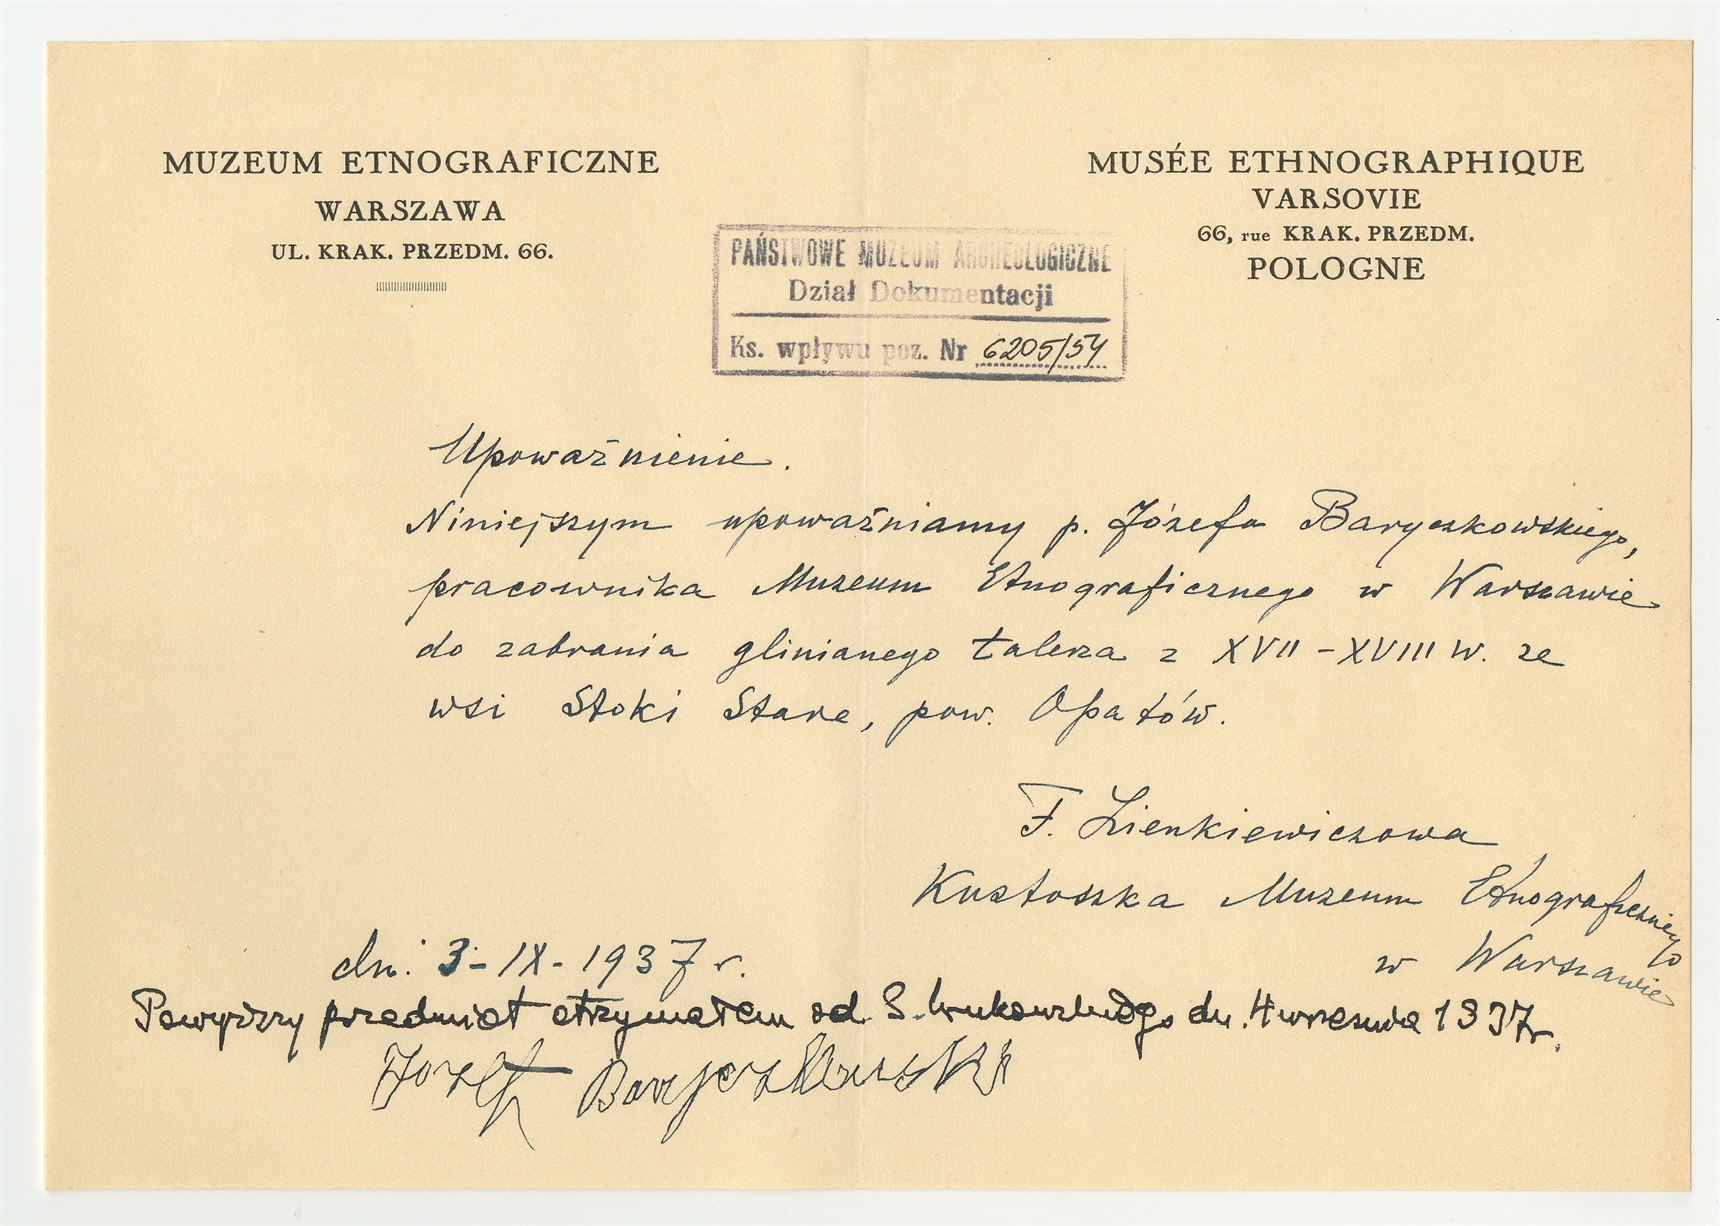 MUZEUM ETNOGRAFICZNE
WARSZAWA
UL. KRAK. PRZEDM. 66.
MUSÉE ETHNOGRAPHIQUE
VARSOVIE
66, rue KRAK. PRZEDM.
POLOGNE
PAŃSTWOWE MUZEUM ARCHEOLOGICZNE
Dział Dokumentacji
Ks. wpływu poz. Nr 6205/54
Upoważnienie.
Niniejszym upoważniamy p. Józefa Baryczkowskiego,
pracownika Muzeum Etnograficznego w Warszawie
do zabrania glinianego talerza z XVII-XVIII w. ze
wsi Stoki Stare, pow. Opatów.
F. Lienkiewiczowa
Kustoszka Muzeum Etnograficznego
w Warszawie
dn. 3-IX-1937 r.
Powyższy przedmiot otrzymałem od S. dn. 4 września 1937 r.
Józef Baryczkowski